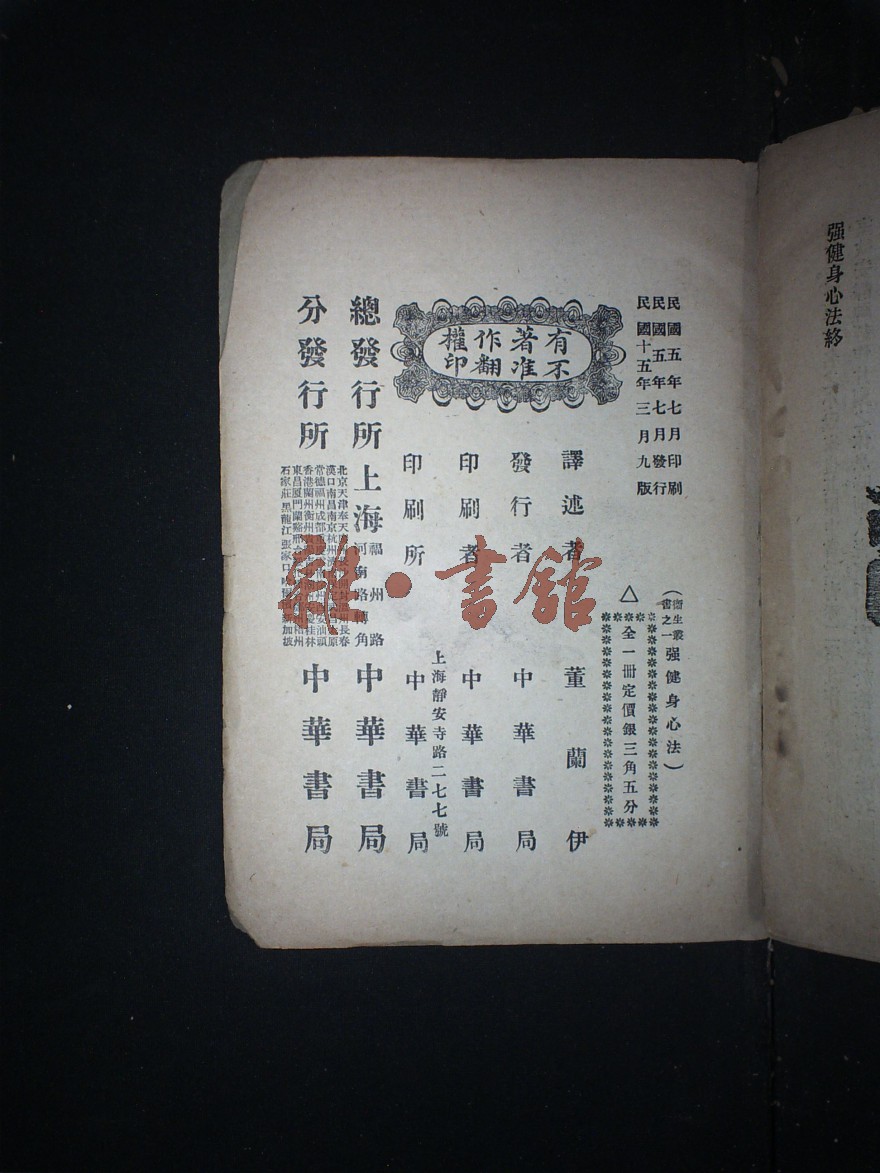 强健身心法終
民國五年七月印刷
民國五年七月發行
民國十五年三月九版
(衞生叢書之一强健身心法)
△全一冊定價銀三角五分
有不
著准
作翻
權印
譯述者 董蘭伊
發行者 中華書局
印刷者 中華書局
上海靜安寺路二七七號
印刷所 中華書局
總發行所 上海 福州路河南路轉角 中華書局
分發行所
北京天津奉天
長春
漢口南昌南京杭州
太原
常德福州成都
汕頭
香港蘭州衡州
桂林
東昌厦門蘭谿
石家莊黑龍江張家口
新加坡
中華書局
雜·書館